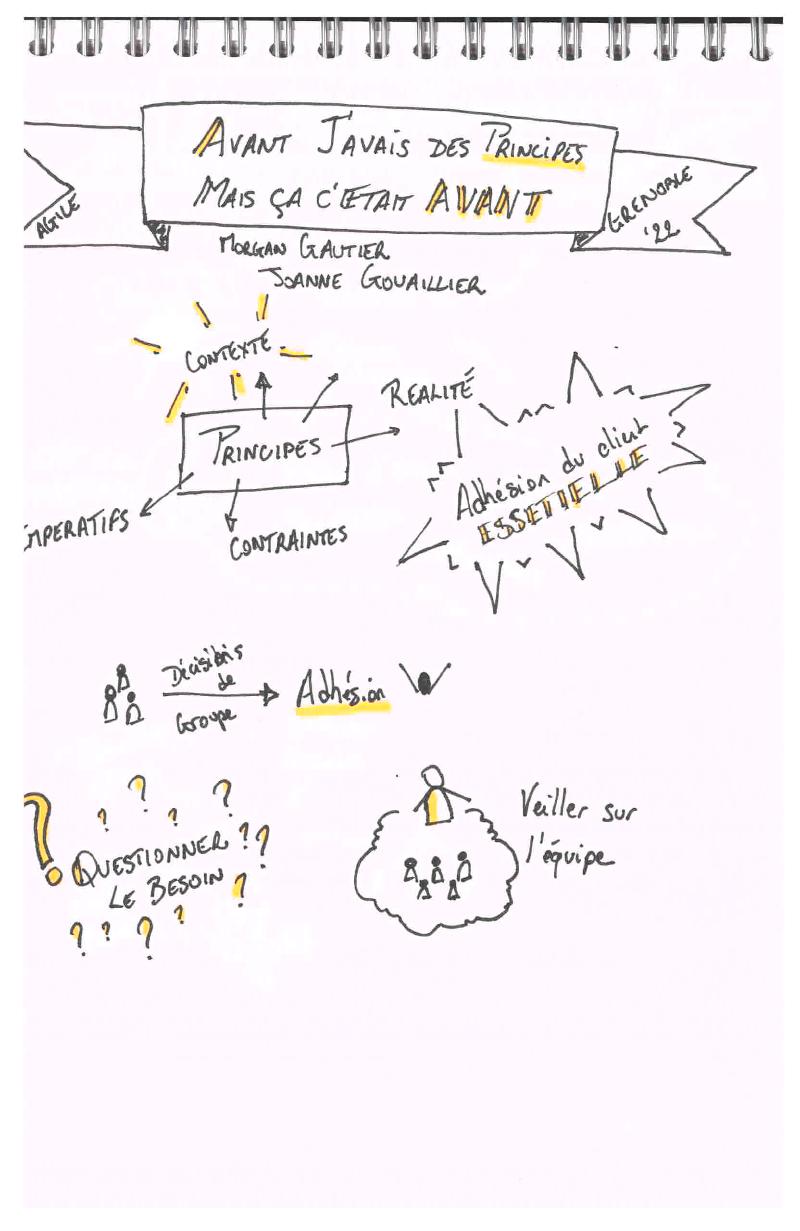 AVANT J'AVAIS DES PRINCIPES
MAIS ÇA C'ETAIT AVANT
AGILE
GRENOBLE
'22
MORGAN GAUTIER
JOANNE GOUAILLIER
CONTEXTE
REALITÉ
PRINCIPES
Adhésion du client
ESSETIELLE
MPERATIFS
CONTRAINTES
Décisions
de
Groupe
Adhésion
? ? ? ? ?
QUESTIONNER ??
LE BESOIN ?
? ? ? ?
Veiller sur
l'équipe